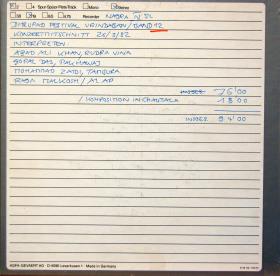 2 4 Spur·Spoor·Piste·Track Mono Stereo
19 38 9 Recorder NAGRA IV SL
DHRUPAD FESTIVAL VRINDABAN / BAND 12
KONZERTMITSCHNITT 26/3/82
INTERPRETEN
ASAD ALI KHAN, RUDRA VINA
GOPAL DAS, PAKHAWAJ
MOHAMMAD ZAIDI, TANPURA
RAGA MALKOSH / ALAP 76'00
/ KOMPOSITION IN CHAUTALA 18'00
INSGES. 94'00
AGFA-GEVAERT AG · D-5090 Leverkusen 1 · Made in Germany